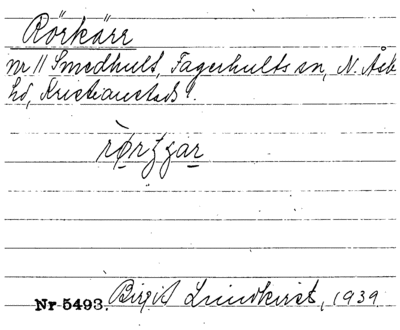 Rörkärr
nr 11 Smedhult, Fagerhults sn, N. Åsb
hd, Kristianstads l.
Nr 5493. Birgit Lindkvist, 1939